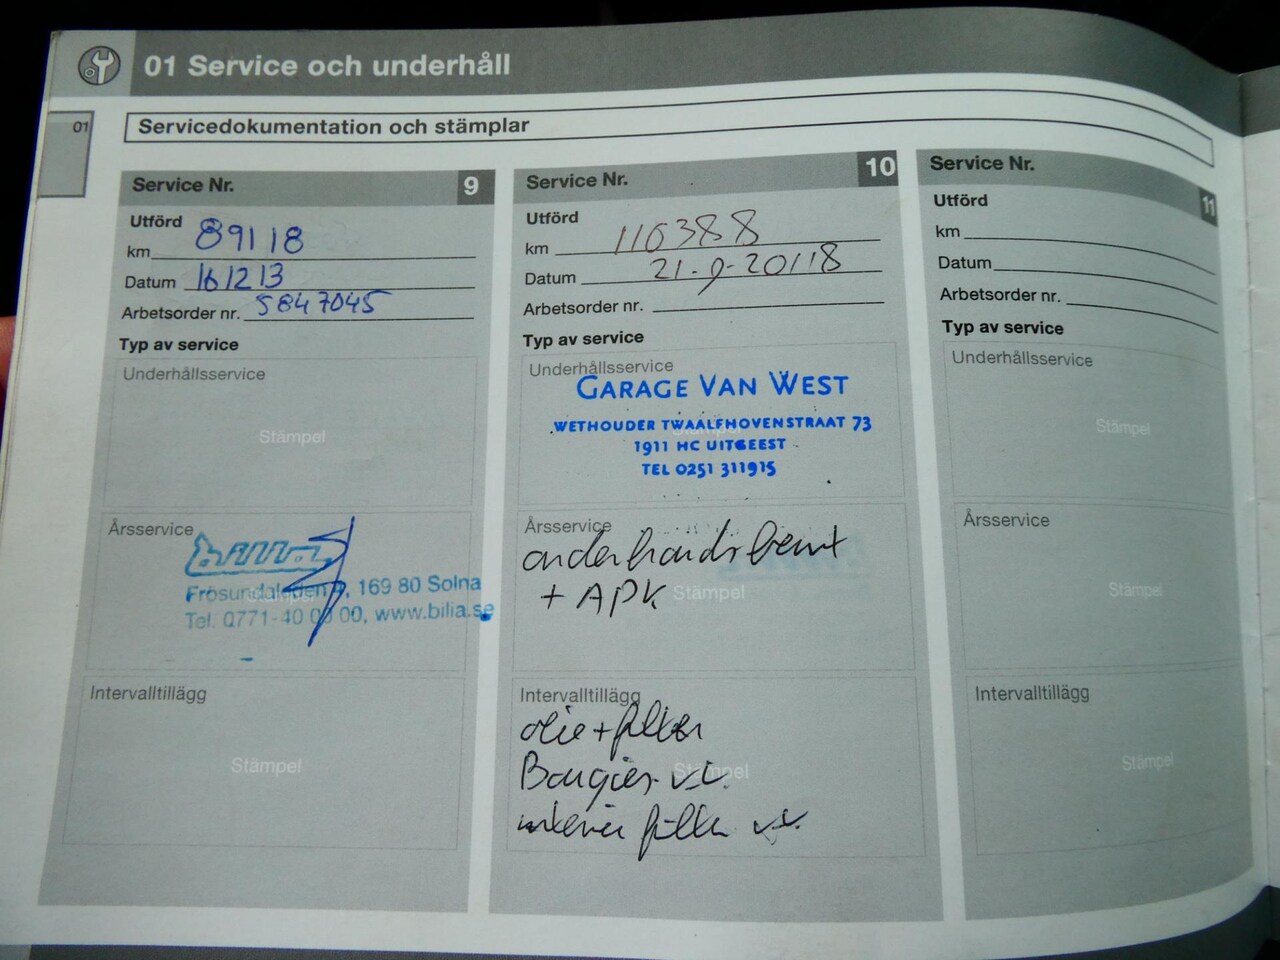 01 Service och underhåll
01
Servicedokumentation och stämplar
Service Nr. 9
Utförd
km 89118
Datum 161213
Arbetsorder nr. 5847045
Typ av service
Underhållsservice
Stämpel
Årsservice
bilia
Stämpel
Frösundaleden, 169 80 Solna
Tel. 0771-40 00 00, www.bilia.se
Intervalltillägg
Stämpel
Service Nr. 10
Utförd
km 110388
Datum 21-9-20118
Arbetsorder nr.
Typ av service
Underhållsservice
Stämpel
GARAGE VAN WEST
WETHOUDER TWAALFHOVENSTRAAT 73
1911 HC UITGEEST
TEL 0251 311915
Årsservice
onderhoudsbeurt
+ APK
Stämpel
Intervalltillägg
olie + filter
Bougies v.v.
Stämpel
interieur filter v.v.
Service Nr. 11
Utförd
km
Datum
Arbetsorder nr.
Typ av service
Underhållsservice
Stämpel
Årsservice
Stämpel
Intervalltillägg
Stämpel